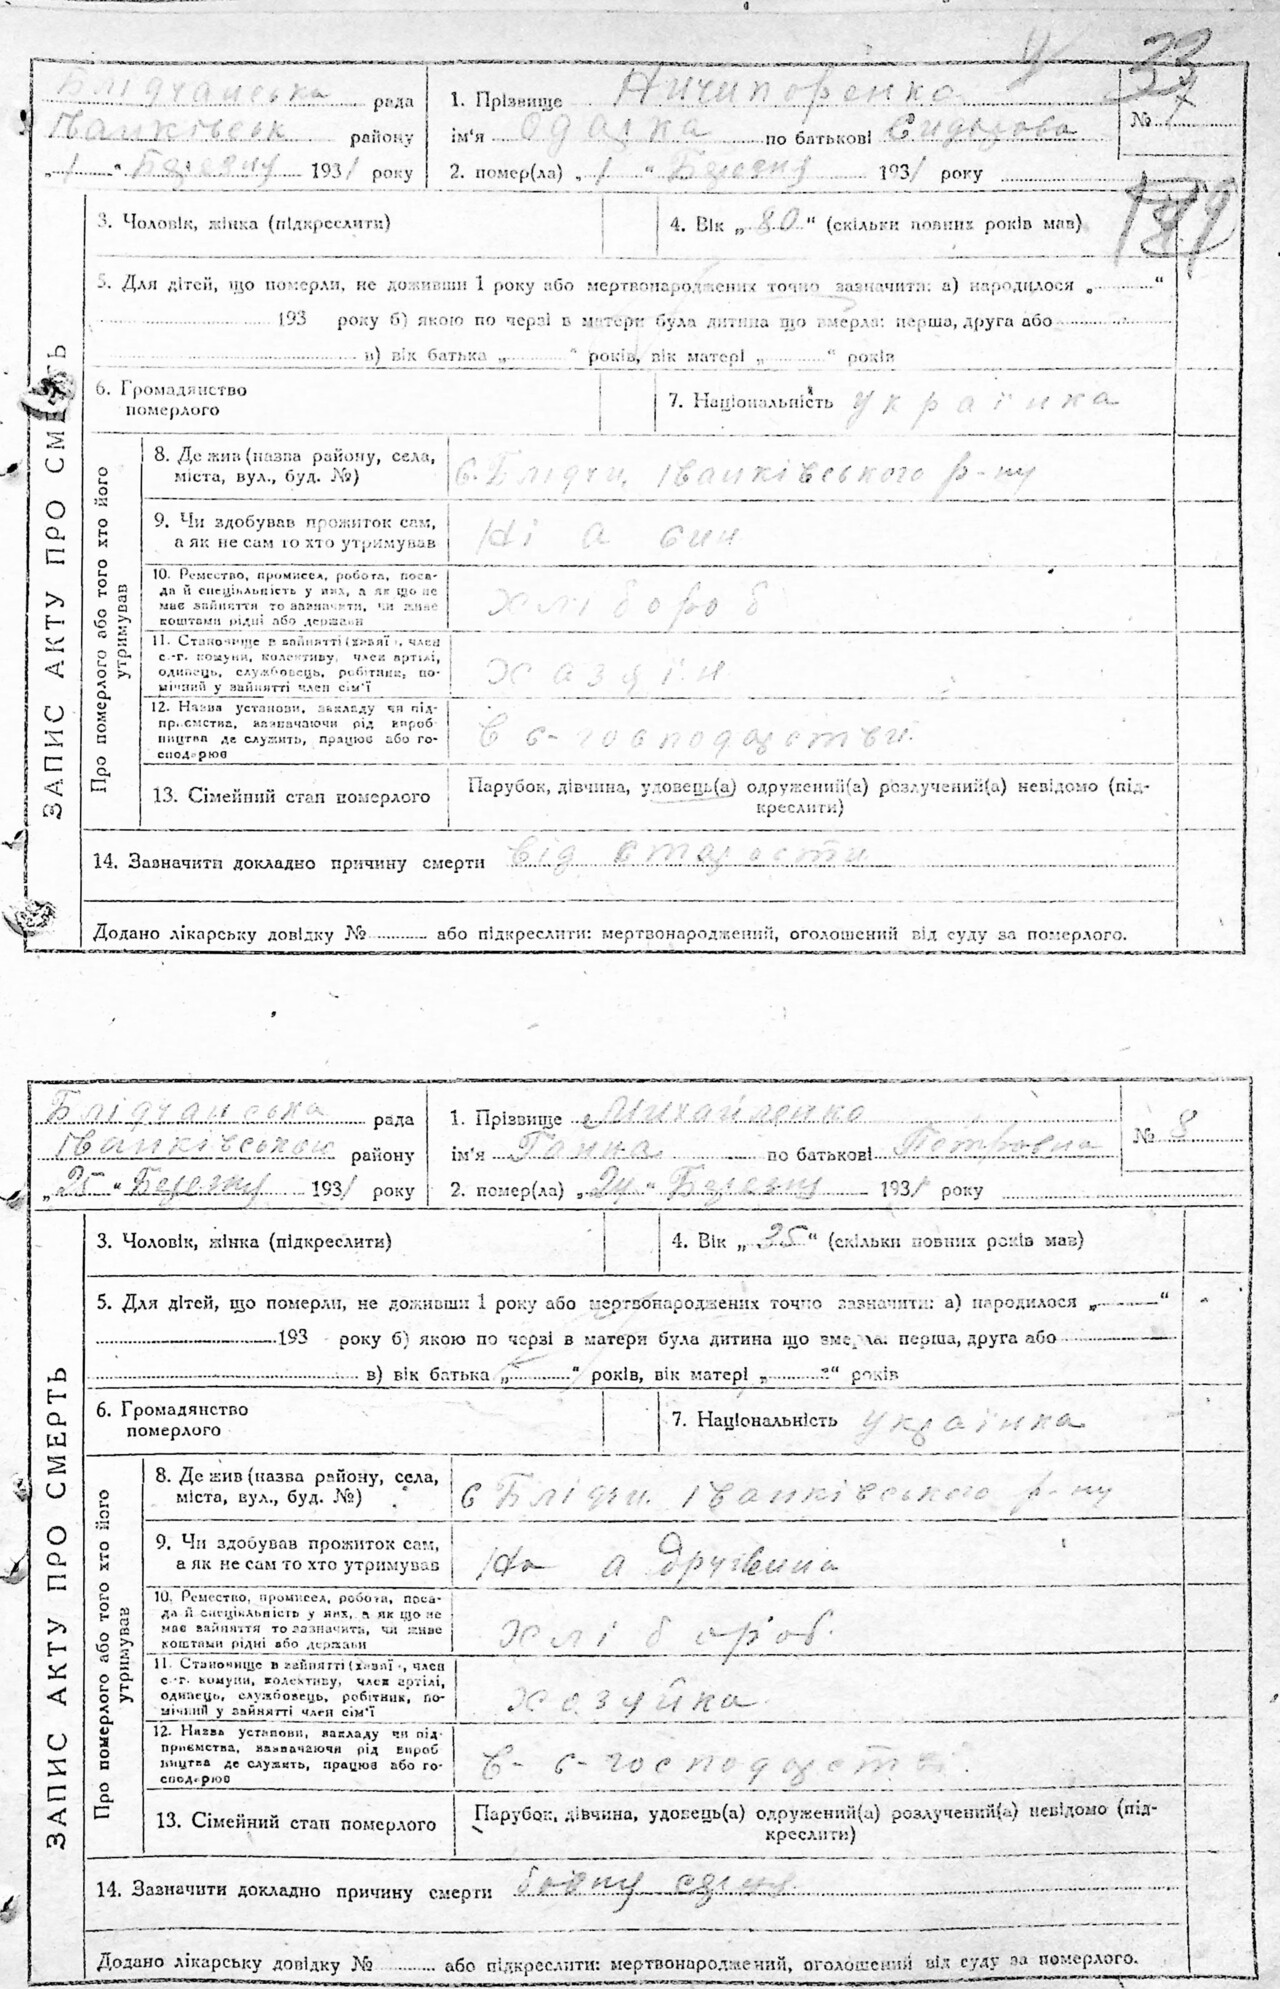 33
Блідчанська рада
Іванківськ району
„1“ Березня 1931 року
1. Прізвище Ничипоренко
ім'я Одарка по батькові Сидорова
2. помер(ла) „1“ Березня 1931 року
№ 7
3. Чоловік, жінка (підкреслити)
4. Вік „80“ (скільки повних років мав)
5. Для дітей, що померли, не доживши 1 року або мертвонароджених точно зазначити: а) народилося „ “
193 року б) якою по черзі в матери була дитина що вмерла: перша, друга або
в) вік батька „ “ років, вік матері „ “ років
6. Громадянство
померлого
7. Національність українка
ЗАПИС АКТУ ПРО СМЕРТЬ
Про померлого або того хто його
утримував
8. Де жив (назва району, села,
міста, вул., буд. №)
с. Блідчи, Іванківського р-ну
9. Чи здобував прожиток сам,
а як не сам то хто утримував
Ні а син
10. Ремество, промисел, робота, поса-
да й спеціяльність у них, а як що не
має зайняття то зазначити, чи живе
коштами рідні або держави
хлібороб
11. Становище в зайнятті (хазяї, член
с.-г. комуни, колективу, член артілі,
одинець, службовець, робітник, по-
мічний у зайнятті член сім'ї
хазяїн
12. Назва установи, закладу чи під-
приємства, зазначаючи рід вироб
ництва де служить, працює або го-
сподарює
в с-господарстви
13. Сімейний стан померлого
Парубок, дівчина, удовець(а) одружений(а) розлучений(а) невідомо (під-
креслити)
14. Зазначити докладно причину смерти від старости
Додано лікарську довідку № або підкреслити: мертвонароджений, оголошений від суду за померлого.
Блідчанська рада
Іванківською району
„25“ Березня 1931 року
1. Прізвище Михайленко
ім'я Ганна по батькові Петровна
2. помер(ла) „24“ Березня 1931 року
№ 8
3. Чоловік, жінка (підкреслити)
4. Вік „35“ (скільки повних років мав)
5. Для дітей, що померли, не доживши 1 року або мертвонароджених точно зазначити: а) народилося „ “
193 року б) якою по черзі в матери була дитина що вмерла: перша, друга або
в) вік батька „ “ років, вік матері „ “ років
6. Громадянство
померлого
7. Національність українка
ЗАПИС АКТУ ПРО СМЕРТЬ
Про померлого або того хто його
утримував
8. Де жив (назва району, села,
міста, вул., буд. №)
с Блідчи. Іванківського р-ну
9. Чи здобував прожиток сам,
а як не сам то хто утримував
а
10. Ремество, промисел, робота, поса-
да й спеціяльність у них, а як що не
має зайняття то зазначить, чи живе
коштами рідні або держави
хлібороб.
11. Становище в зайнятті (хазяї, член
с.-г. комуни, колективу, член артілі,
одинець, службовець, робітник, по-
мічний у зайнятті член сім'ї
хозяйка
12. Назва установи, закладу чи під-
приємства, зазначаючи рід вироб
ництва де служить, працює або го-
сподарює
в- с-господарстві.
13. Сімейний стан померлого
Парубок, дівчина, удовець(а) одружений(а) розлучений(а) невідомо (під-
креслити)
14. Зазначити докладно причину смерти
Додано лікарську довідку № або підкреслити: мертвонароджений, оголошений від суду за померлого.